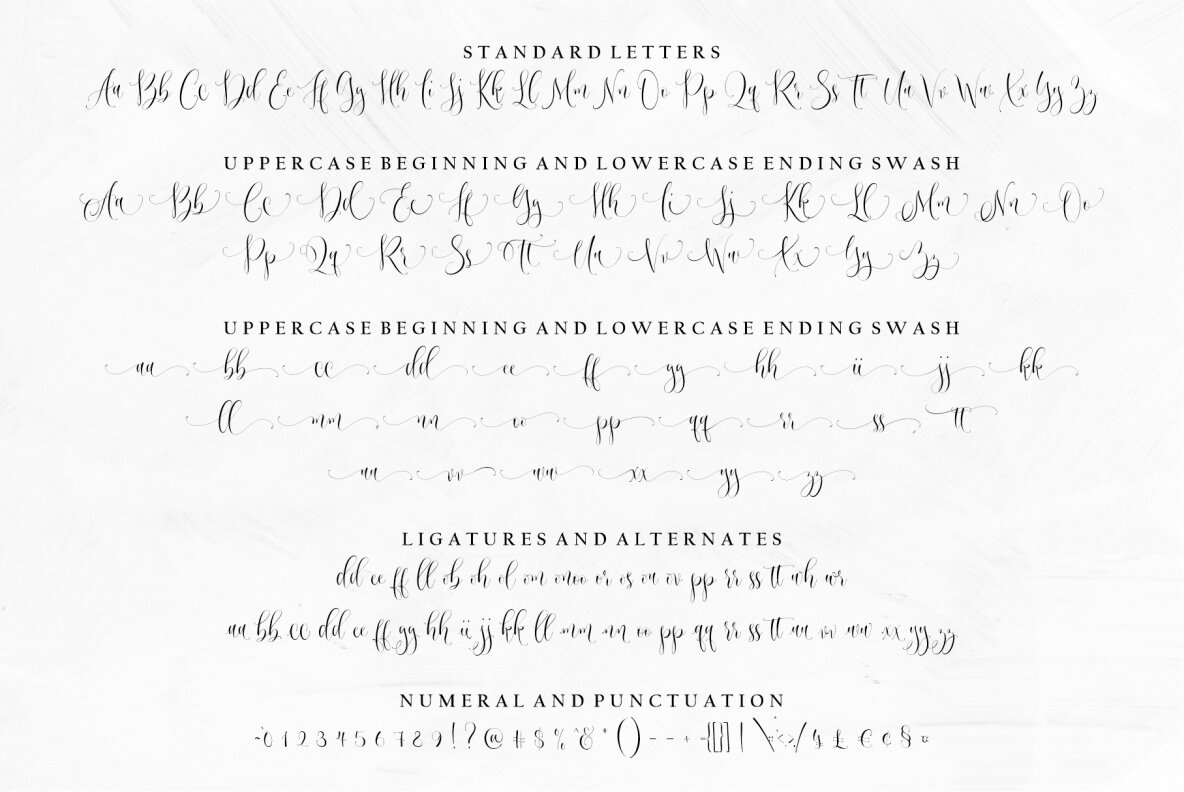 STANDARD LETTERS
Aa Bb Cc Dd Ee Ff Gg Hh Ii Jj Kk Ll Mm Nn Oo Pp Qq Rr Ss Tt Uu Vv Ww Xx Yy Zz
UPPERCASE BEGINNING AND LOWERCASE ENDING SWASH
Aa Bb Cc Dd Ee Ff Gg Hh Ii Jj Kk Ll Mm Nn Oo
Pp Qq Rr Ss Tt Uu Vv Ww Xx Yy Zz
UPPERCASE BEGINNING AND LOWERCASE ENDING SWASH
aa bb cc dd ee ff gg hh ii jj kk
ll mm nn oo pp qq rr ss tt
uu vv ww xx yy zz
LIGATURES AND ALTERNATES
dd ee ff ll ob oh ol om on oo or os ou ov pp rr ss tt wh wr
aa bb cc dd ee ff gg hh ii jj kk ll mm nn oo pp qq rr ss tt uu vv ww xx yy zz
NUMERAL AND PUNCTUATION
0 1 2 3 4 5 6 7 8 9 ! ? @ # $ % ^ & * ( ) - - + { [ ] | \ : ; < > / ¥ £ € ¢ § ¤